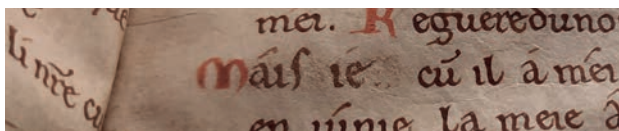 li nr̃e cu
mei. Reguereduno
Mais ie cũ il a mei
en iunie la meie a